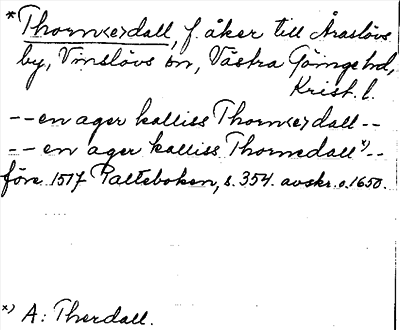 *Thorn<e>dall, f. åker till Åraslövs
by, Vinslövs sn, Västra Göinge hd,
Krist. l.
-- en ager kalliss Thorn<e>dall --
-- en ager kalliss Thornedall x) --
före 1517 Palteboken, s. 354. avskr. o. 1650.
x) A: Therdall.